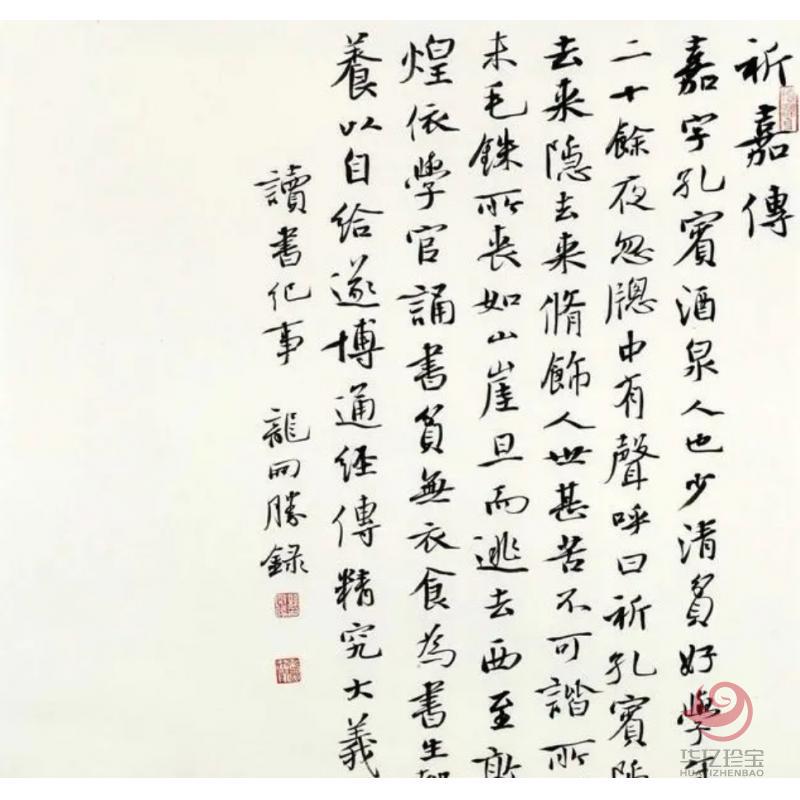 祈嘉傳
嘉字孔賓酒泉人也少清貧好學年
二十餘夜忽牕中有聲呼曰祈孔賓隐
去来隐去来脩飾人世甚苦不可諧所
未毛銖所喪如山崖旦而逃去西至燉
煌依學官誦書貧無衣食為書生都
養以自給遂博通經傳精究大義
讀書化事 龍開勝録
华亿珍宝
HUAYIZHENBAO